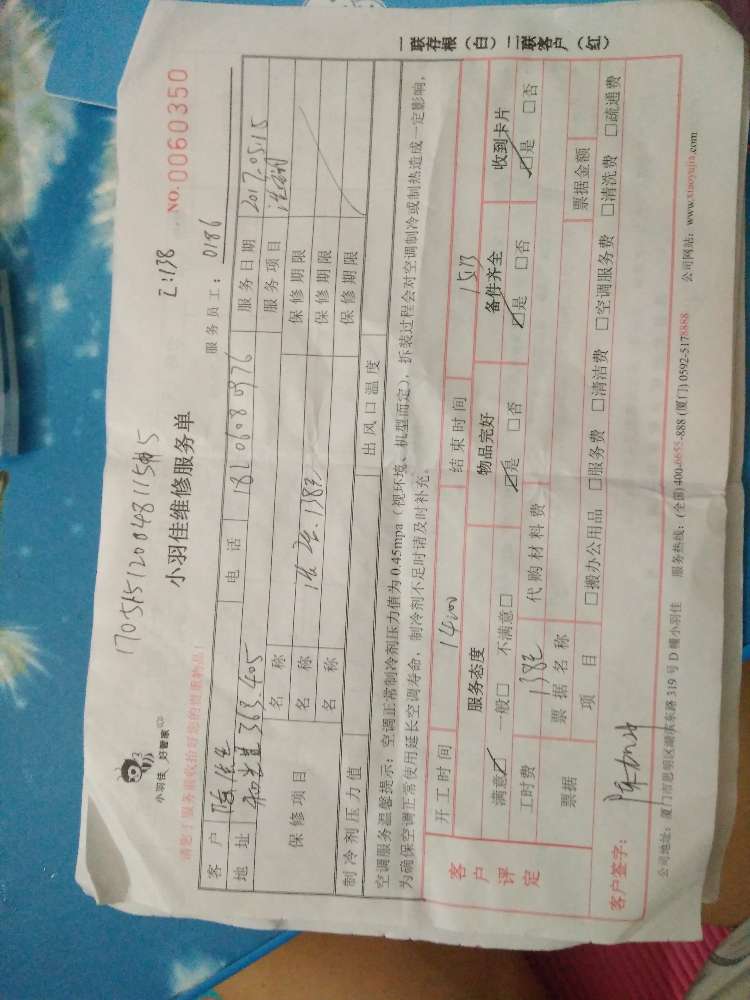 170515120048115
小羽佳 好管家
小羽佳维修服务单
NO.0060350
请您于服务前收拾好您的贵重物品!
服务员工: 0186
客户 陈先生 电话 服务日期 2017.05.15
地址 363.405 服务项目
保修项目 名称 保修期限
名称 138元 保修期限
名称 保修期限
制冷剂压力值 出风口温度
空调服务温馨提示:空调正常制冷剂压力值为0.45mpa(视环境、机型而定),拆装过程会对空调制冷或制热造成一定影响,
为确保空调正常使用延长空调寿命,制冷剂不足时请及时补充。
一联存根(白)二联客户(红)
客户评定
开工时间 14:00 结束时间
服务态度 物品完好 备件齐全 收到卡片
满意☑ 一般□ 不满意□ ☑是 □否 ☑是 □否 ☑是 □否
工时费 138元 代购材料费
票据 票据名称 票据金额
项目 □搬办公用品 □服务费 □清洁费 □空调服务费 □清洗费 □疏通费
客户签字:
公司地址:厦门市思明区湖滨东路319号D幢小羽佳 服务热线:(全国)400-6655-888 (厦门)0592-5178888 公司网站:www.xiaoyujia.com